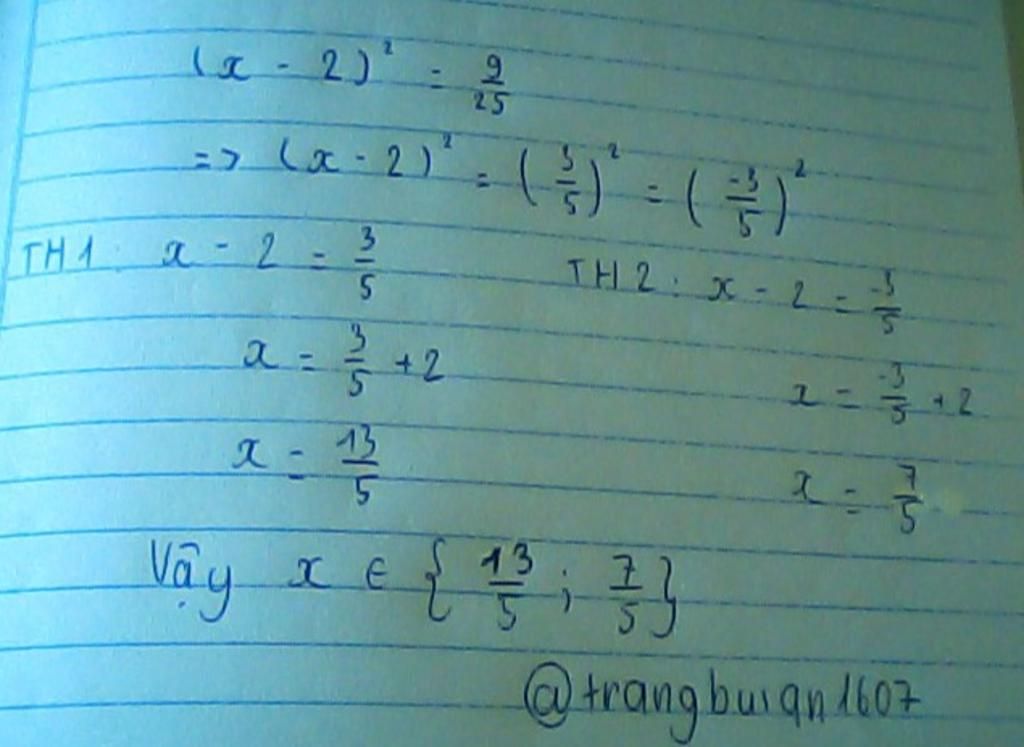 (x - 2)² = 9/25
=> (x - 2)² = (3/5)² = (-3/5)²
TH1: x - 2 = 3/5
TH2: x - 2 = -3/5
x = 3/5 + 2
x = -3/5 + 2
x = 13/5
x = 7/5
Vậy x ∈ {13/5; 7/5}
@trangbuiqn1607